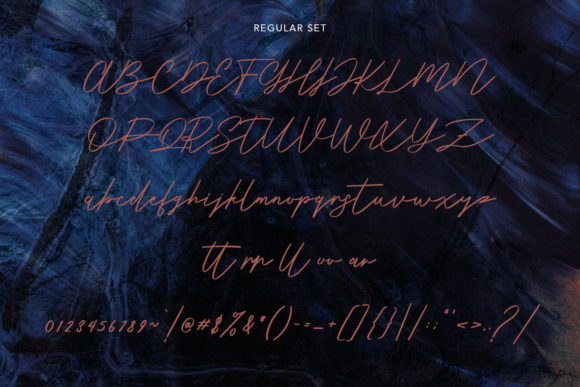 REGULAR SET
ABCDEFGHIJKLMN
OPQRSTUVWXYZ
abcdefghijklmnopqrstuvwxyz
tt rr ll ov ar
0123456789~`!@#$%&*()-=_+[]{}||:;"'<>,.?/